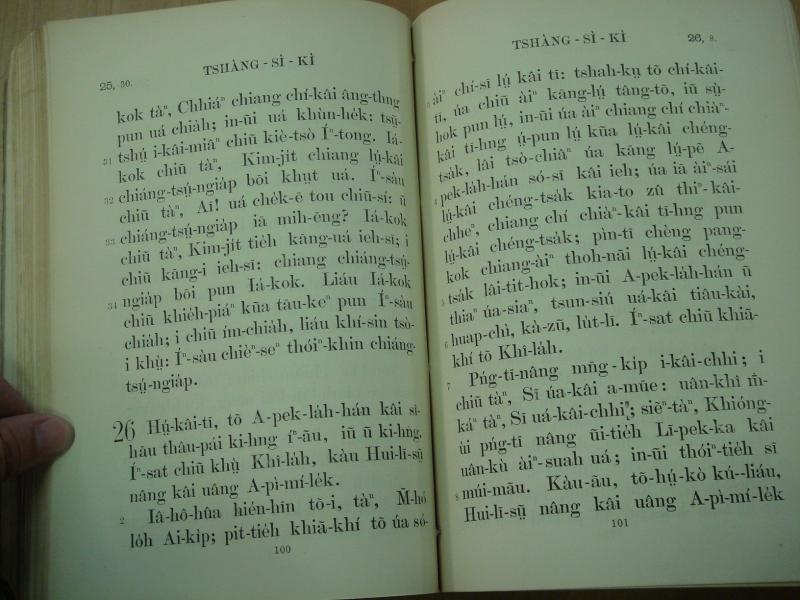 25, 30.
TSHÀNG - SÌ - KÌ
kok tàⁿ, Chhiáⁿ chiang chí-kâi âng-thng
pun uá chia̍h; in-ūi uá khùn-he̍k: tsṳ̄-
31 tshṳ́ i-kâi-miâⁿ chiū kiè-tsò Íⁿ-tong. Iá-
kok chiū tàⁿ, Kim-ji̍t chiang lṳ́-kâi
32 chiáng-tsṳ́-ngia̍p bōi khṳt uá. Íⁿ-sàu
chiū tàⁿ, Aī! uá che̍k-ē tou chiū-sí: ū
33 chiáng-tsṳ́-ngia̍p iā mih-ēng? Iá-kok
chiū tàⁿ, Kim-ji̍t tie̍h kāng-uá ieh-sī; i
chiū kāng-i ieh-sī: chiang chiáng-tsṳ́-
34 ngia̍p bōi pun Iá-kok. Liáu Iá-kok
chiū khie̍h-piáⁿ kūa tāu-keⁿ pun Íⁿ-sàu
chia̍h; i chiū ím-chia̍h, liáu khí-sin tsò-
i khṳ̀: Íⁿ-sàu chièⁿ-seⁿ thóiⁿ-khin chiáng-
tsṳ́-ngia̍p.
26 Hṳ́-kâi-tī, tō A-pek-la̍h-hán kâi sî-
hāu thâu-pái ki-hng íⁿ-āu, iū ū ki-hng,
Íⁿ-sat chiū khṳ̀ Khî-la̍h, kàu Hui-lī-sṳ̄
nâng kâi uâng A-pì-mí-le̍k.
2 Iâ-hô-hûa hién-hīn tō-i, tàⁿ, M̄-hó
lo̍h Ai-ki̍p; pit-tie̍h khiā-khí tō úa só-
100
TSHÀNG - SÌ - KÌ
26, 8.
3 àiⁿ chí-sī lṳ́ kâi tī: tshah-kṳ tō chí-kâi-
tī, úa chiū àiⁿ kāng-lṳ́ tâng-tō, iū sṳ̀-
hok pun lṳ́, in-ūi úa àiⁿ chiang chí chiàⁿ-
kâi tī-hng ṳ́-pun lṳ́ kūa lṳ́-kâi chéng-
tsa̍k, lâi tsò-chiâⁿ úa kàng lṳ́-pē A-
4 pek-la̍h-hán só-sī kâi ieh; úa iā àiⁿ-sái
lṳ́-kâi chéng-tsa̍k kia-to zû thiⁿ-kâi-
chheⁿ, chiang chí chiàⁿ-kâi tī-hng pun
lṳ́-kâi chéng-tsa̍k; pìn-tī chèng pang-
kok chiang-àiⁿ thoh-nāi lṳ́-kâi chéng-
5 tsa̍k lâi-tit-hok; in-ūi A-pek-la̍h-hán ū
thiaⁿ úa-siaⁿ, tsun-siú uá-kâi tiâu-kài,
6 huap-chì, kà-zū, lu̍t-lī. Íⁿ-sat chiū khiā-
khí tō Khî-la̍h.
7 Pńg-tī-nâng mn̄g-ki̍p i-kâi-chhi; i
chiū tàⁿ, Sī úa-kâi a-mūe: uân-khî m̄-
káⁿ tàⁿ, Sī uá-kâi-chhi; siēⁿ-tàⁿ, Khióng-
ùi pńg-tī nâng ūi-tie̍h Lī-pek-ka kâi
uân-kù àiⁿ-suah uá; in-ūi thóiⁿ-tie̍h sī
8 múi-māu. Kàu-āu, tō-hṳ́-kò kú--liáu,
Hui-lī-sṳ̄ nâng kâi uâng A-pì-mí-le̍k
101